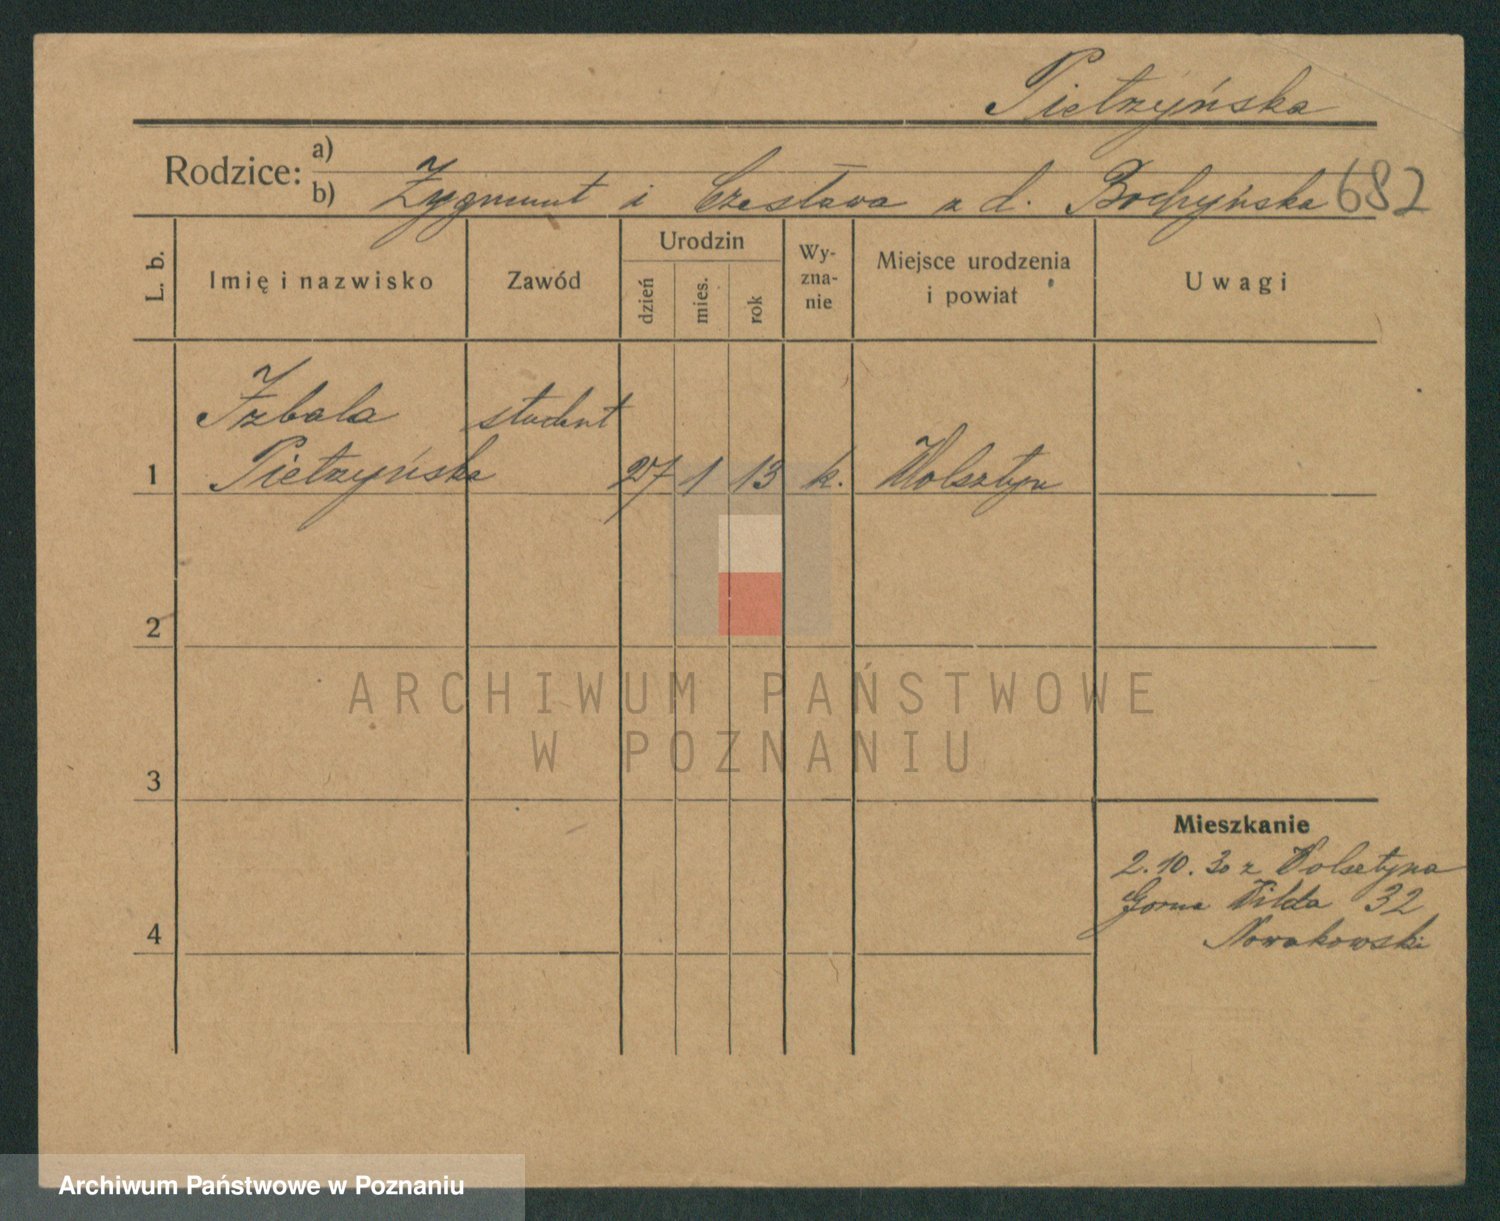 Pietrzyńska
Rodzice: a)
b) Zygmunt i Czesława z d. Bochyńska 682
L. b.
Imię i nazwisko
Zawód
Urodzin
dzień
mies.
rok
Wy-
zna-
nie
Miejsce urodzenia
i powiat
Uwagi
Izbala student
1 Pietrzyńska 27 1 13 k. Wolsztyn
2
ARCHIWUM PAŃSTWOWE
W POZNANIU
3
Mieszkanie
2. 10. 30 z Wolsztyna
Gorna Wilda 32
Nowakowski
4
Archiwum Państwowe w Poznaniu